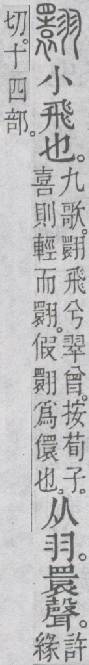 翾小飛也。九歌。翾飛兮翠曾。按荀子。
喜則輕而翾。假翾爲儇也。从羽。睘聲。許緣
切。十四部。